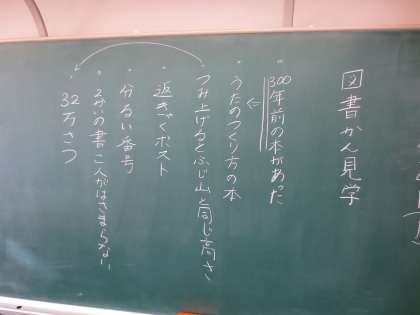 図書かん見学
・300年前の本があった
・うたのつくり方の本
・つみ上げるとふじ山と同じ高さ
・返きゃくポスト
・分るい番号
の書こ人がはさまらない
・32万さつ